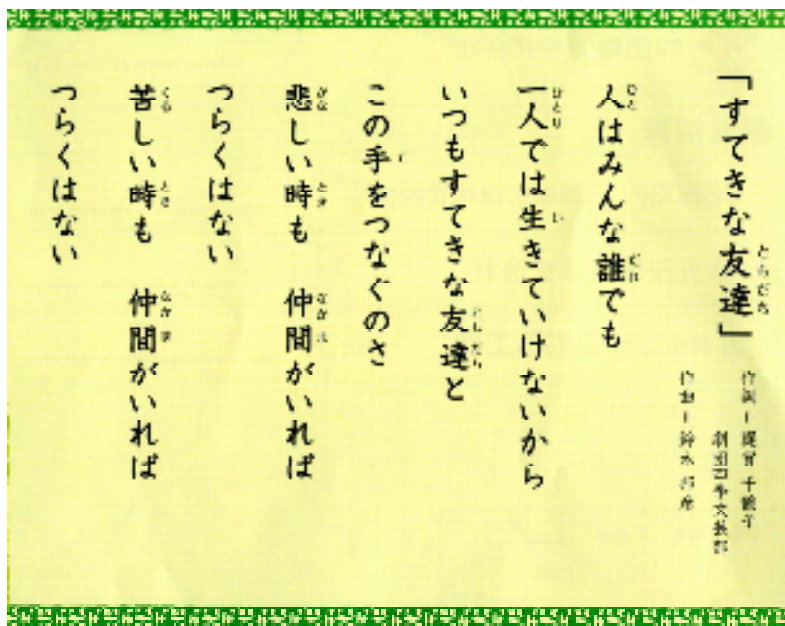 「すてきな友達」
作詞ー梶賀 千鶴子
劇団四季文芸部
作曲ー鈴木 邦彦
人はみんな誰でも
一人では生きていけないから
いつもすてきな友達と
この手をつなぐのさ
悲しい時も　仲間がいれば
つらくはない
苦しい時も　仲間がいれば
つらくはない